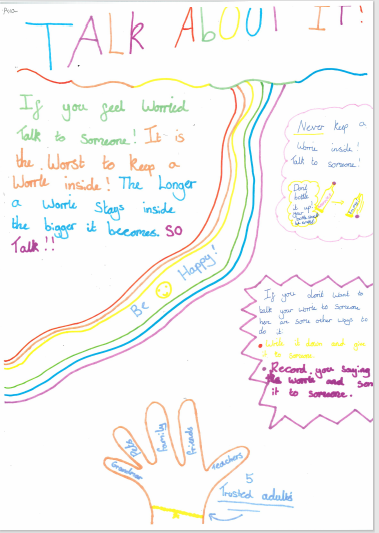 TALK AbOUT IT!
If you feel Worried
Talk to Someone! It is
the Worst to keep a
Worrie inside! The Longer
a Worrie Stays inside
the bigger it becomes. SO
Talk!!
Never keep a
Worrie inside!
Talk to someone!
Dont
bottle
it up!
Be Happy!
If you dont want to
talk your worrie to someone
here are some other ways to
do it
Write it down and give
it to someone.
Record, you saying
the worrie and
it to someone.
Grandma
Pets
family
friends
Teachers
5
Trusted adults